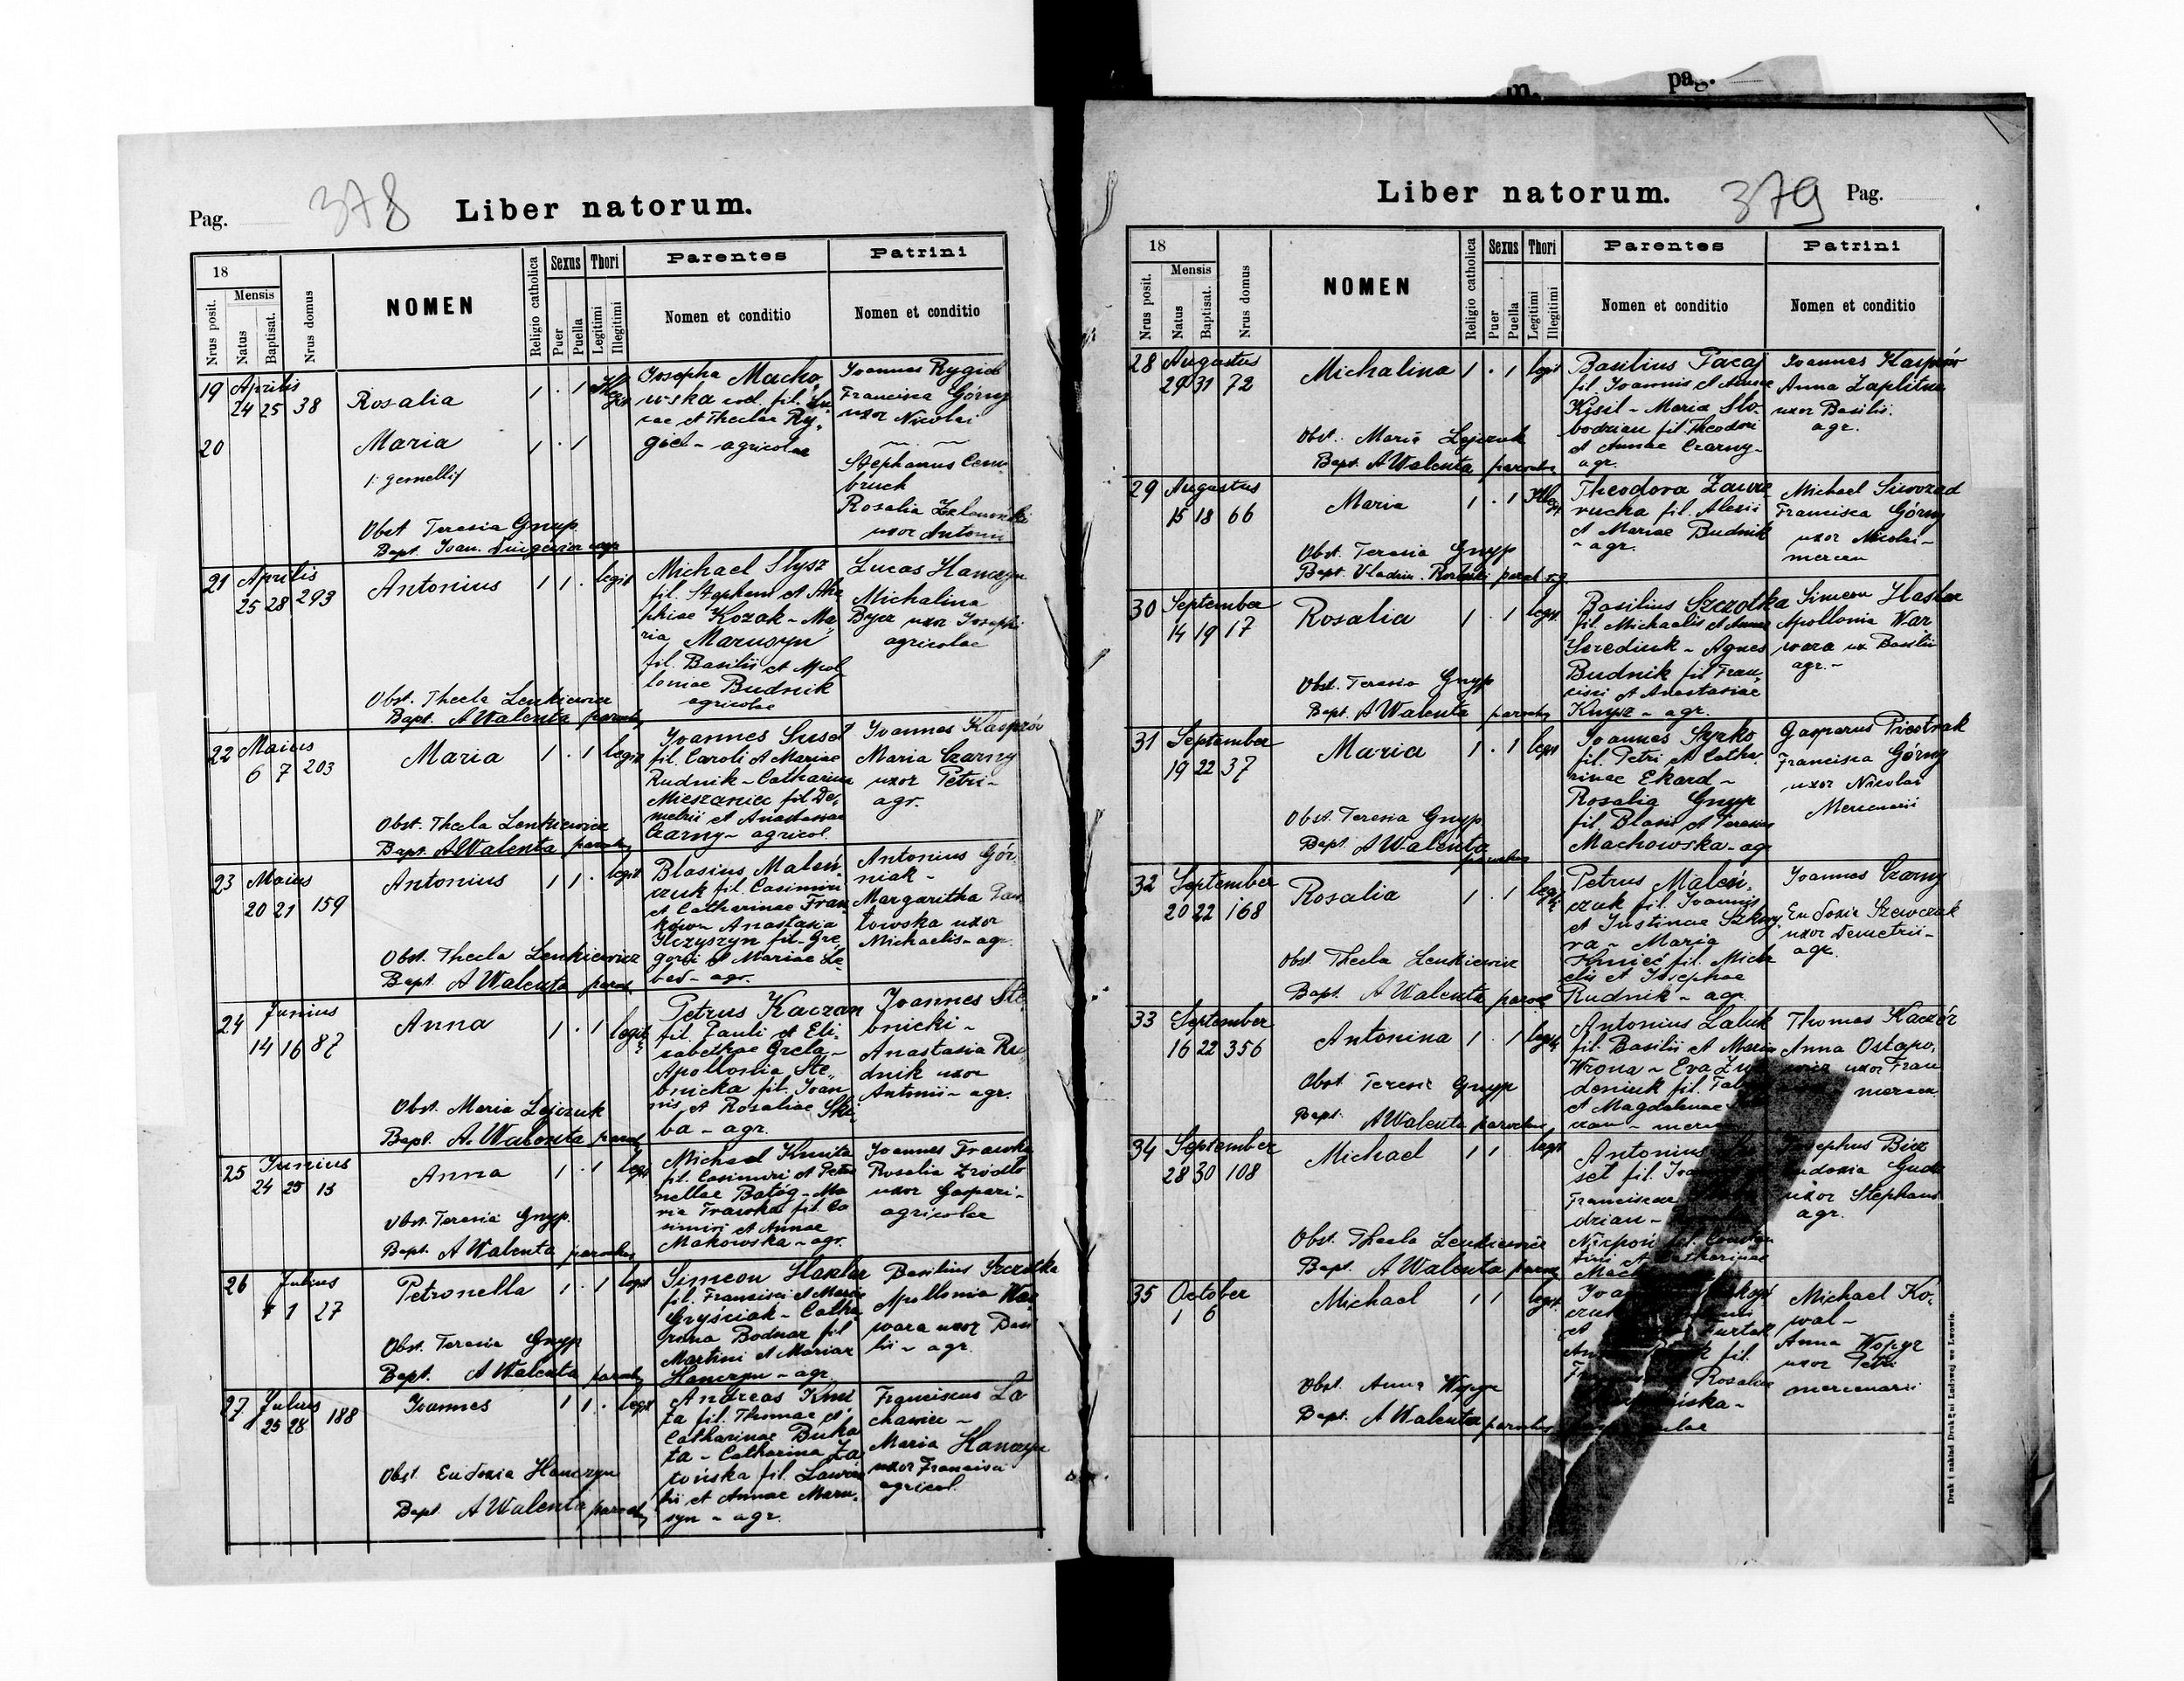 m. pag.
Pag. 378 Liber natorum.
18
Mensis
Nrus posit.
Natus
Baptisat.
Nrus domus
NOMEN
Religio catholica
Sexus
Puer
Puella
Thori
Legitimi
Illegitimi
Parentes
Nomen et conditio
Patrini
Nomen et conditio
19 Aprilis
24 25 38
Rosalia 1 . 1
20
Maria 1 . 1
gemelli
Obst Teresia Gnyp
Bapt. Joan.
Josepha Macho,
wska
cae et Theclae Ry,
giel - agricolae
Joannes Rygiel
Francisca Górny
uxor Nicolai
Stephanus
bruch
Rosalia
uxor Antonii
21 Aprilis
25 28 293
Antonius 1 1 . legit
Obst. Thecla Lenkiewicz
Bapt. A Walenta paroch
Michael Slysz
fil. Stephani et Aga
phiae Kozak - Ma
ria Marusyn
fil. Basilii et Apol
loniae Budnik
agricolae
Lucas Hanczyn
Michalina
Bycz uxor Josephi
agricolae
22 Maius
6 7 203
Maria 1 . 1 legit
Obst. Thecla Lenkiewicz
Bapt. A Walenta paroch
Joannes Susel
fil. Caroli et Mariae
Rudnik - Catharina
fil De,
metrii et Anastasiae
Czarny - agricol.
Joannes Kasprów
Maria Czarny
uxor Petri -
agr.
23 Maius
20 21 159
Antonius 1 1 . legit
Obst. Thecla Lenkiewicz
Bapt. A Walenta paroch
Blasius Maleń,
czuk fil. Casimiri
et Catharinae Fran
ków - Anastasia
Ilczyszyn fil. Gre,
gorii et Mariae Le
bed - agr.
Antonius Gór,
niak -
Margaritha
towska uxor
Michaelis - agr.
24 Junius
14 16 87
Anna 1 . 1 legit
Obst. Maria Lejczuk
Bapt. A. Walenta paroch
Petrus Kaczan
fil. Pauli et Eli
sabethae Grela -
Apollonia Ste,
bnicka fil. Joan
nis et Rosaliae Ski
ba - agr.
Joannes Ste
bnicki -
Anastasia Ru
dnik uxor
Antonii - agr.
25 Junius
24 25 15
Anna 1 . 1 legit
Obst. Teresia Gnyp.
Bapt. A Walenta parochus
Michael Kmita
fil. Casimiri et Petro
nellae Batóg - Ma
ria Trawka fil. Ca
simiri et Annae
Makowska - agr.
Joannes Trawka
Rosalia Zródlo
uxor Gaspari -
agricolae
26 Julius
1 27
Petronella 1 . 1 legit
Obst. Teresia Gnyp
Bapt. A Walenta paroch
Simeon Haszlar
fil. Francisci et Mariae
Gryściak - Catha,
rina Bodnar fil
Martini et Mariae
Hanczyn - agr.
Basilius Szczotka
Apollonia Wa
wara uxor Basi
lii - agr.
27 Julius
25 28 188
Joannes 1 1 . legit
Obst. Eudoxia Hanczyn
Bapt. A Walenta paroch
Andreas Kmi
ta fil. Thomae et
Catharinae Buka
ta - Catharina Za
tońska fil.
et Annae Maru,
syn - agr.
Franciscus La
chawiec -
Maria Hanczyn
uxor Francisci
agricol.
Liber natorum. 379 Pag.
18
Mensis
Nrus posit.
Natus
Baptisat.
Nrus domus
NOMEN
Religio catholica
Sexus
Puer
Puella
Thori
Legitimi
Illegitimi
Parentes
Nomen et conditio
Patrini
Nomen et conditio
28 Augustus
29 31 72
Michalina 1 . 1 legit
Obst. Maria Lejczuk
Bapt. A Walenta parochus
Basilius Pacaj
fil Joannis et Annae
Kisil - Maria Slo-
bodzian fil Theodori
et Annae Czarny -
agr.
Joannes Kasprów
Anna Zaplitna
uxor Basilii.
agr.
29 Augustus
15 18 66
Maria 1 . 1 Illeg
Obst. Teresia Gnyp
Bapt. Vladim.
Theodora Zawa
rucha fil. Alexii
et Mariae Budnik
- agr.
Michael
Francisca Górny
uxor Nicolai -
mercen
30 September
14 19 17
Rosalia 1 . 1 legit
Obst. Teresia Gnyp
Bapt. A Walenta parochus
Basilius Szczotka
fil. Michaelis et Annae
Serediuk - Agnes
Budnik fil Fran,
cisci et Anastasiae
Knysz - agr.
Simeon Haszlar
Apollonia Wa
wara ux Basilii
agr. -
31 September
19 22 37
Maria 1 . 1 legit
Obst. Teresia Gnyp
Bapt. A Walenta
parochus
Joannes Syrko
fil. Petri et Catha,
rinae Ekard -
Rosalia Gnyp
fil. Blasii et Teresiae
Machowska - ag
Gasparus
Francisca Górny
uxor Nicolai
Mercenarii
32 September
20 22 168
Rosalia 1 . 1 legit
Obst. Thecla Lenkiewicz
Bapt. A Walenta paroch
Petrus Maleń,
czuk fil. Joannis
et Justinae
ra - Maria
Kmieć fil. Mich
elis et Josephae
Rudnik - agr.
Joannes Czarny
Eudoxia Szewczuk
uxor Demetrii -
agr.
33 September
16 22 356
Antonina 1 . 1 legit
Obst. Teresia Gnyp
Bapt. A Walenta parochus
Antonius Laluk
fil. Basilii et Maria
Wrona - Eva
doniuk fil.
et Magdalenae
Thomas Kaczór
Anna Ostapo,
wicz uxor Fran
mercen.
34 September
28 30 108
Michael 1 1 legit
Obst. Thecla Lenkiewicz
Bapt. A Walenta paroch
Antonius
set fil.
Franciscae
dzian -
et Catharinae
Josephus
Eudoxia
uxor Stephani
agr.
35 October
1 6
Michael 1 1 legit
Obst. Anna Wojgr
Bapt. A Walenta parochus
fil.
Rosaliae
Michael Ko,
wal -
Anna Wojgr
uxor Petri
mercenarii
Druk i nakład Drukarni Ludowej we Lwowie.